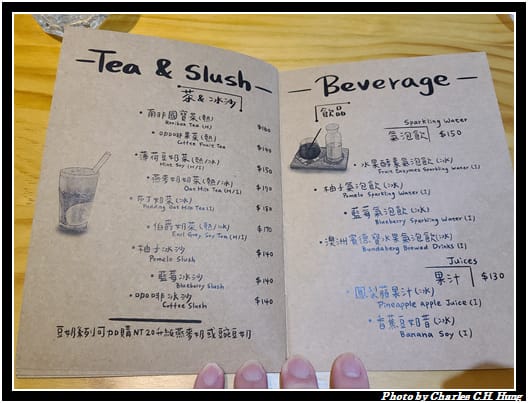 Tea & Slush
茶 & 冰沙
• 南非國寶茶(熱)
Rooibos Tea (H) $160
• 咖啡果茶(熱)
Coffee Fruit Tea $140
• 薄荷豆奶茶(熱/冰)
Mint Soy (H/I) $150
• 燕麥奶奶茶(熱/冰)
Oat Milk Tea (H/I) $170
• 布丁奶茶(冰)
Pudding Oat Milk Tea (I) $180
• 伯爵奶茶(熱/冰)
Earl Grey Soy Tea (H/I) $170
• 柚子冰沙
Pomelo Slush $140
• 藍莓冰沙
Blueberry Slush $140
• 咖啡冰沙
Coffee Slush $140
豆奶系列可加購NT 20升級燕麥奶或豌豆奶
Beverage
Sparkling Water
氣泡飲 $150
• 水果酵素氣泡飲(冰)
Fruit Enzymes Sparkling Water (I)
• 柚子氣泡飲(冰)
Pomelo Sparkling Water (I)
• 藍莓氣泡飲(冰)
Blueberry Sparkling Water (I)
• 澳洲賓德寶水果氣泡飲(冰)
Bundaberg Brewed Drinks (I)
Juices
果汁 $130
• 鳳梨蘋果汁(冰)
Pineapple apple Juice (I)
• 香蕉豆奶昔(冰)
Banana Soy (I)
Photo by Charles C.H. Hung